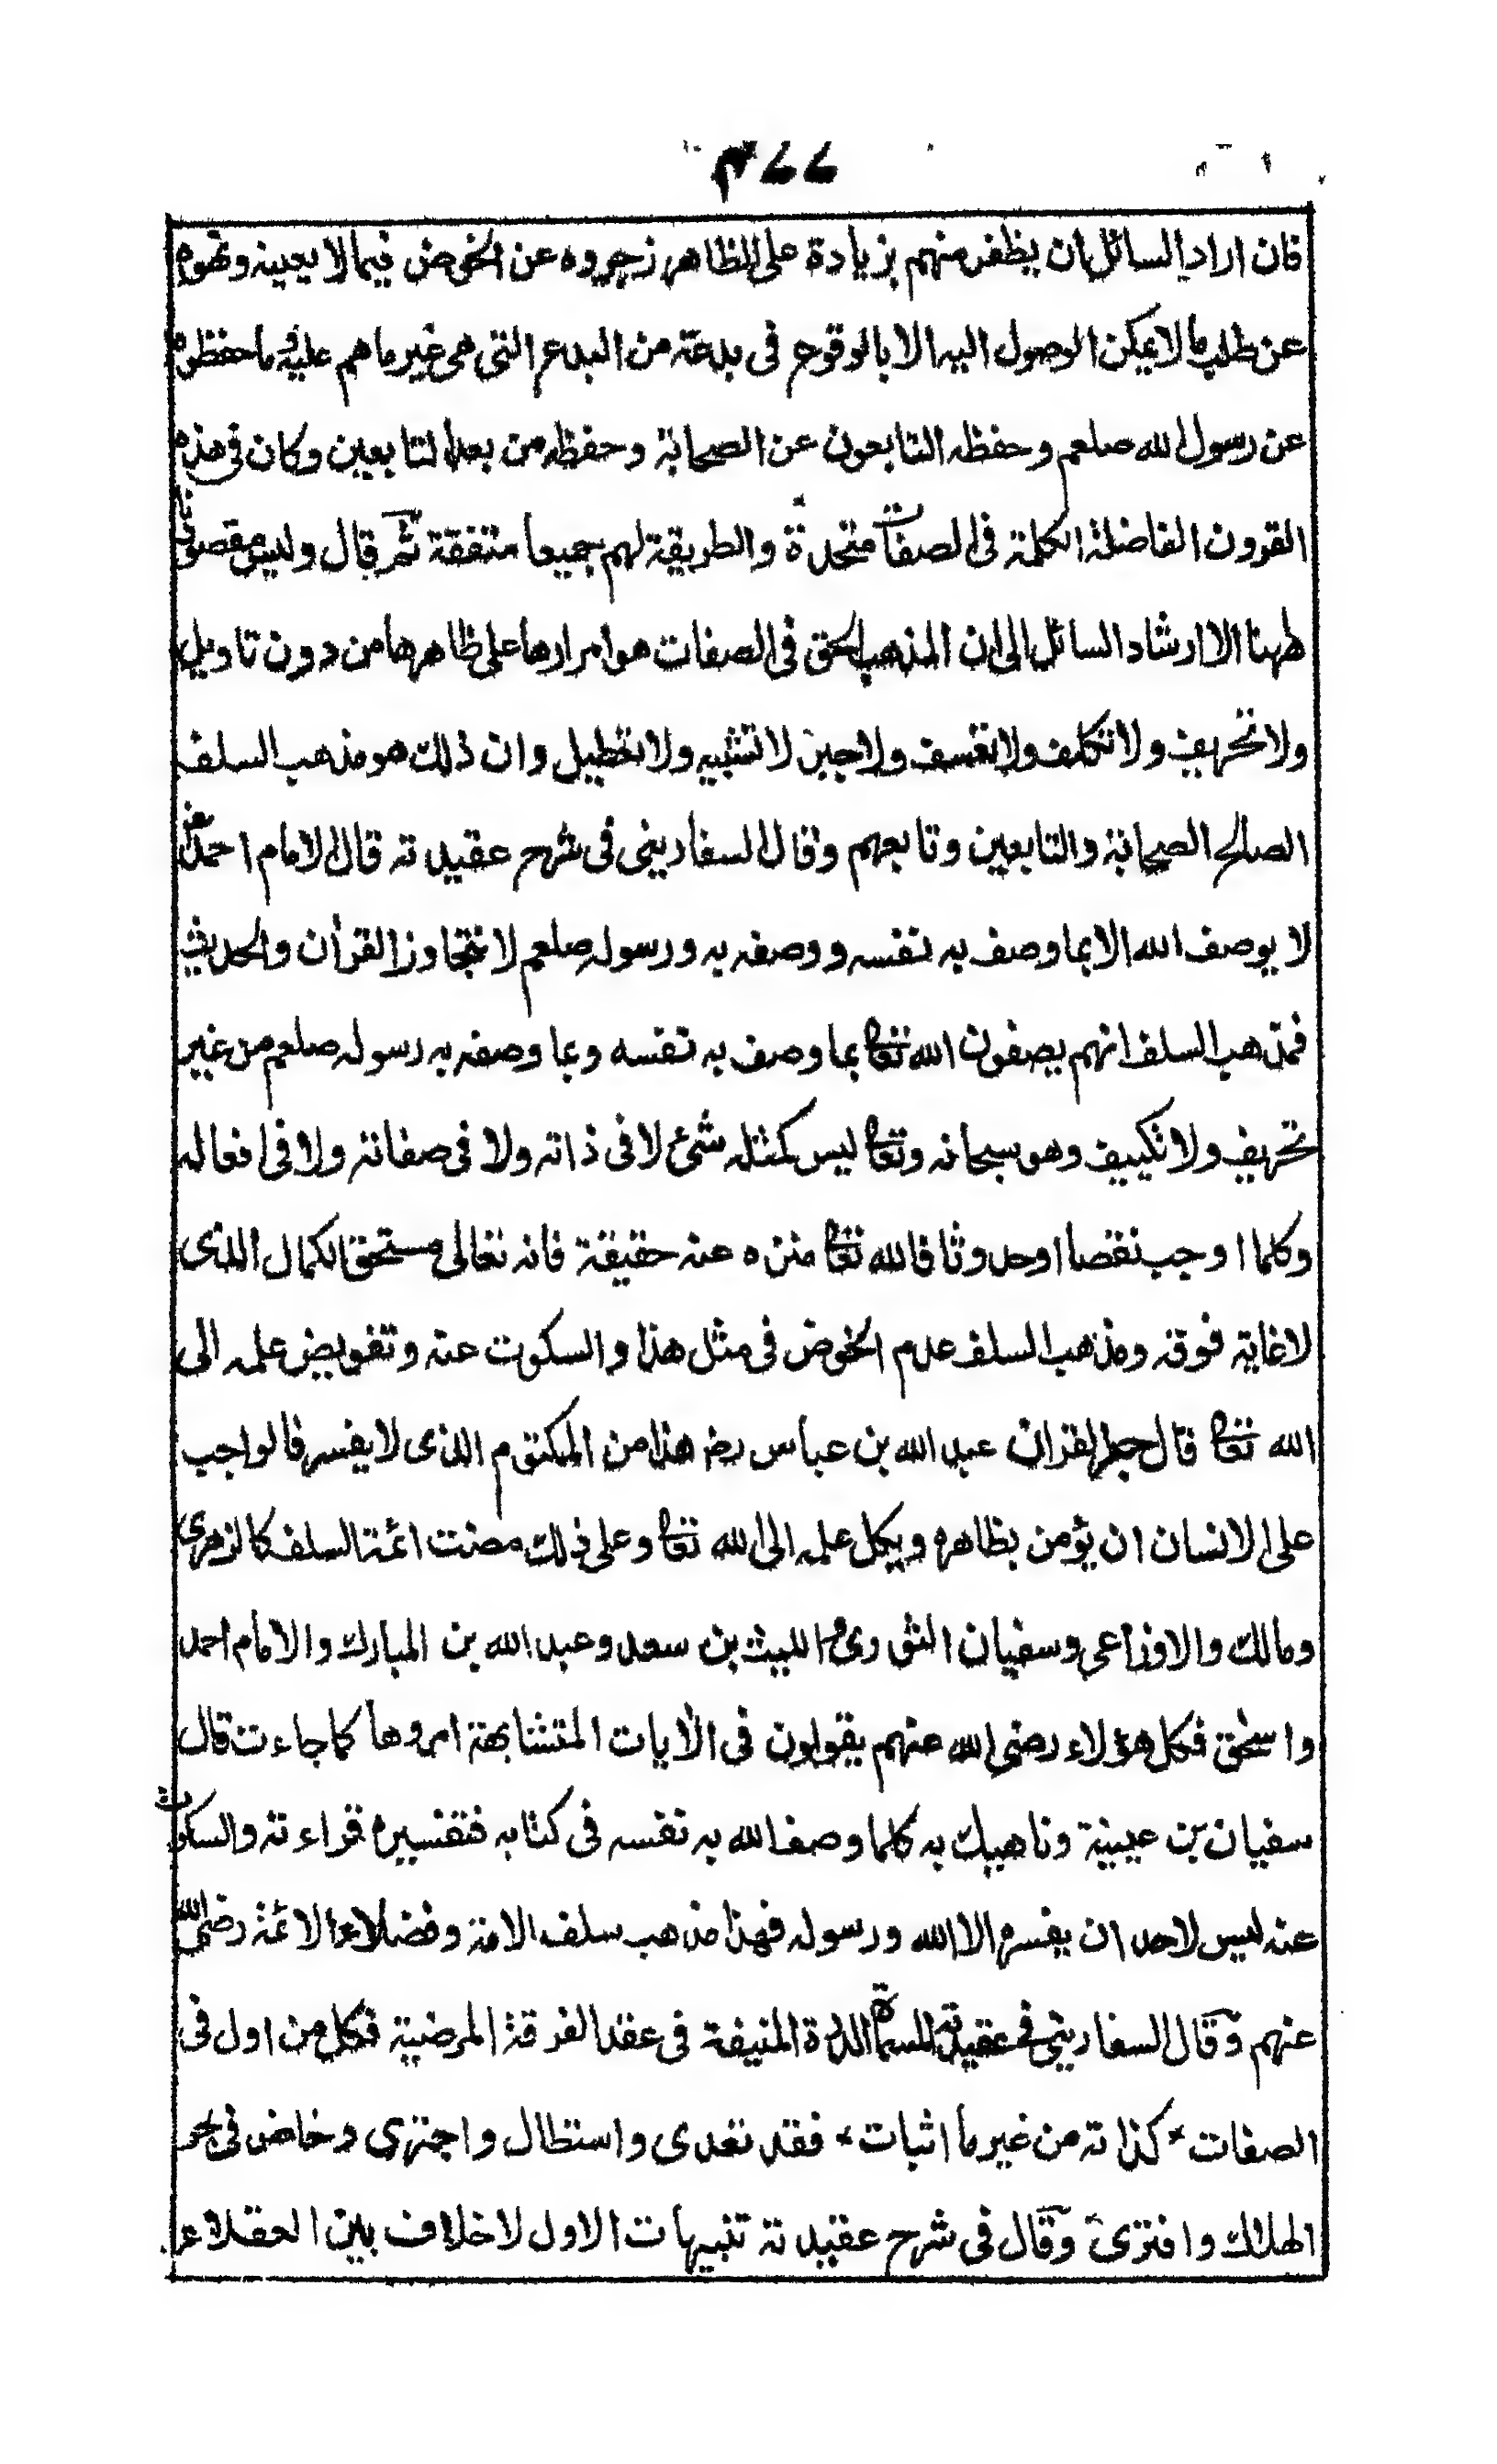 ۴۷۷
فان اراد السائل ان يظفر منهم بزيادة على الظاهر زجروه عن الخوض فيما لا يعينه ونهوه
عن طلب ما لا يمكن الوصول اليه الا بالوقوع فى بدعة من البدع التى هى غير ما هم عليه وما حفظوه
عن رسول الله صلعم وحفظه التابعون عن الصحابة وحفظه من بعد التابعين وكان فى هذه
القرون الفاضلة الكلمة فى الصفات متحدة والطريقة لهم جميعا متفقة ثم قال وليس مقصودنا
ههنا الا ارشاد السائل الى ان المذهب الحق فى الصفات هو امرارها على ظاهرها من دون تاويل
ولا تحريف ولا تكلف ولا تعسف ولا جبر ولا تشبيه ولا تعطيل وان ذلك هو مذهب السلف
الصالح الصحابة والتابعين وتابعهم وقال السفارينى فى شرح عقيدته قال الامام احمد رض
لا يوصف الله الا بما وصف به نفسه ووصفه به ورسوله صلعم لا نتجاوز القرأن والحديث
فمذهب السلف انهم يصفون الله تعا بما وصف به نفسه وبما وصفه به رسوله صلعم من غير
تحريف ولا تكييف وهو سبحانه وتعا ليس كمثله شئ لا فى ذاته ولا فى صفاته ولا فى افعاله
وكلما اوجب نقصا اوحدوثا فالله تعا منزه عنه حقيقة فانه تعالى مستحق الكمال الذى
لا غاية فوقه ومذهب السلف عدم الخوض فى مثل هذا والسكوت عنه وتفويض علمه الى
الله تعا قال حبر القران عبد الله بن عباس رض هذا من المكتوم الذى لا يفسر فالواجب
على الانسان ان يؤمن بظاهره ويكل علمه الى الله تعا وعلى ذلك مضت ائمة السلف كالزهرى
ومالك والاوزاعى وسفيان الثورى والليث بن سعد وعبد الله بن المبارك والامام احمد
واسحٰق فكل هؤلاء رضى الله عنهم يقولون فى الأيات المتشابهة امروها كما جاءت قال
سفيان بن عيينة وناهيك به كلما وصف الله به نفسه فى كتابه فتفسيره قراءته والسكوت
عنه ليس لاحد ان يفسره الا الله ورسوله فهذا مذهب سلف الامة وفضلاء الائمة رضى الله
عنهم وقال السفارينى فى عقيدته المسماة الدرة المنيفة فى عقد الفرقة المرضية فكل من اول فى
الصفات ٭ كذاته من غير ما اثبات ٭ فقد تعدى واستطال واجترى وخاض فى بحر
الهلاك وافترى وقال فى شرح عقيدته تنبيهات الاول لا خلاف بين العقلاء